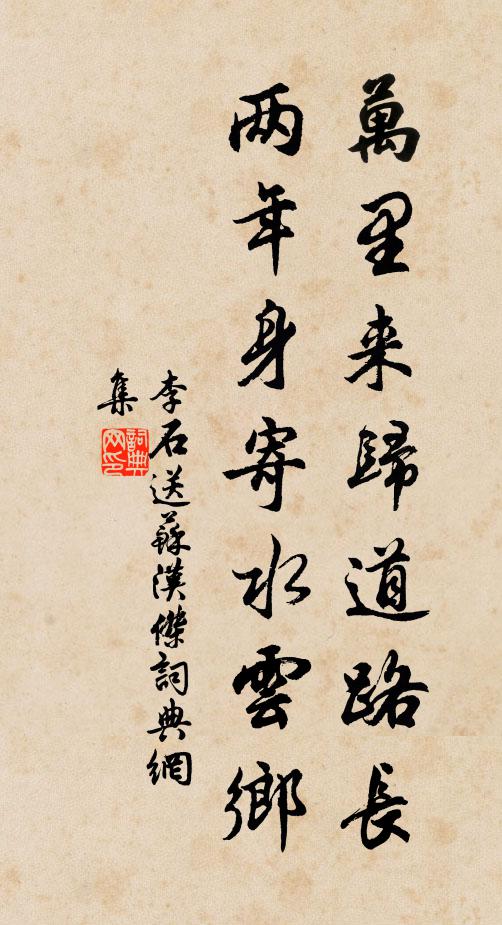 萬里来歸道路長
两年身寄水雲鄉
李石送蘇漢傑詞典網
集
詞典网印